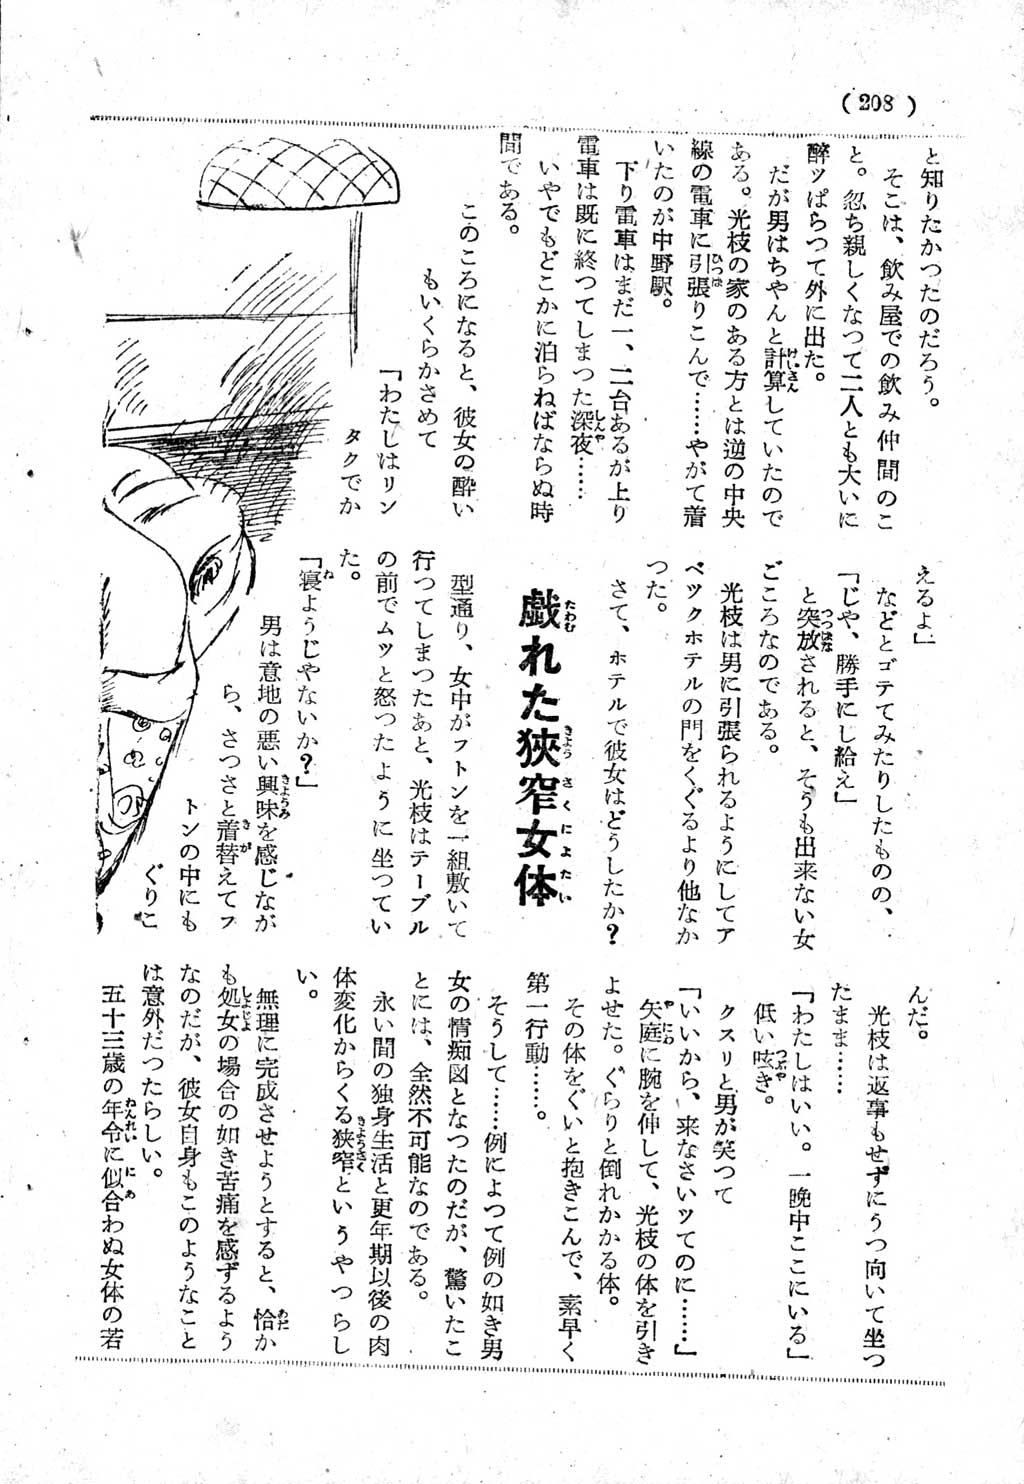 ( 208 )
と知りたかつたのだろう。
そこは、飲み屋での飲み仲間のこ
と。忽ち親しくなつて二人とも大いに
醉ッぱらつて外に出た。
だが男はちやんと計算していたので
ある。光枝の家のある方とは逆の中央
線の電車に引張りこんで……やがて着
いたのが中野駅。
下り電車はまだ一、二台あるが上り
電車は既に終つてしまつた深夜……
いやでもどこかに泊らねばならぬ時
間である。
このころになると、彼女の酔い
もいくらかさめて
「わたしはリン
タクでか
えるよ」
などとゴテてみたりしたものの、
「じや、勝手にし給え」
と突放されると、そうも出来ない女
ごころなのである。
光枝は男に引張られるようにしてア
ベックホテルの門をくぐるより他なか
つた。
さて、ホテルで彼女はどうしたか?
戯れた狹窄女体
型通り、女中がフトンを一組敷いて
行つてしまつたあと、光枝はテーブル
の前でムッと怒つたように坐つてい
た。
「寝ようじやないか?」
男は意地の悪い興味を感じなが
ら、さつさと着替えてフ
トンの中にも
ぐりこ
んだ。
光枝は返事もせずにうつ向いて坐つ
たまま……
「わたしはいい。一晩中ここにいる」
低い呟き。
クスリと男が笑つて
「いいから、来なさいッてのに……」
矢庭に腕を伸して、光枝の体を引き
よせた。ぐらりと倒れかかる体。
その体をぐいと抱きこんで、素早く
第一行動……。
そうして……例によつて例の如き男
女の情痴図となつたのだが、驚いたこ
とには、全然不可能なのである。
永い間の独身生活と更年期以後の肉
体変化からくる狹窄というやつらし
い。
無理に完成させようとすると、恰か
も処女の場合の如き苦痛を感ずるよう
なのだが、彼女自身もこのようなこと
は意外だつたらしい。
五十三歳の年令に似合わぬ女体の若